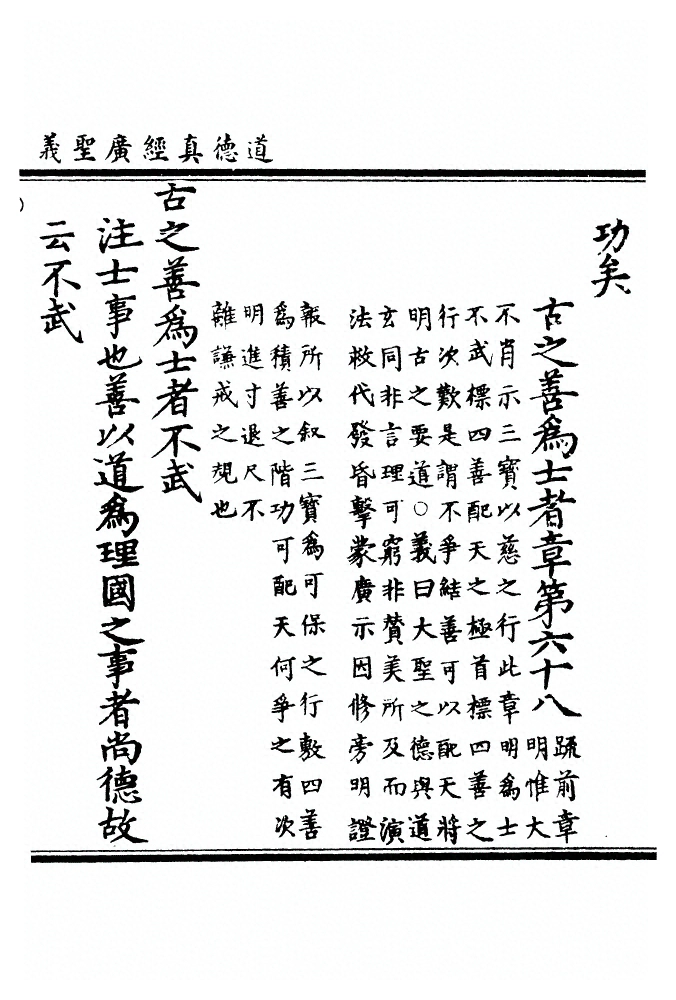 道德真經廣聖義
功矣
古之善爲士者章第六十八
疏前章
明惟大
不肖示三寶以慈之行此章明爲士
不武標四善配天之極首標四善之
行次歎是謂不爭結善可以配天將
明古之要道○義曰大聖之德與道
玄同非言理可窮非贊美所及而演
法救代發昏擊蒙廣示因修旁明證
報所以叙三寶爲可保之行敷四善
爲積善之階功可配天何爭之有次
明進寸退尺不
離謙戒之規也
古之善爲士者不武
注士事也善以道爲理國之事者尚德故
云不武